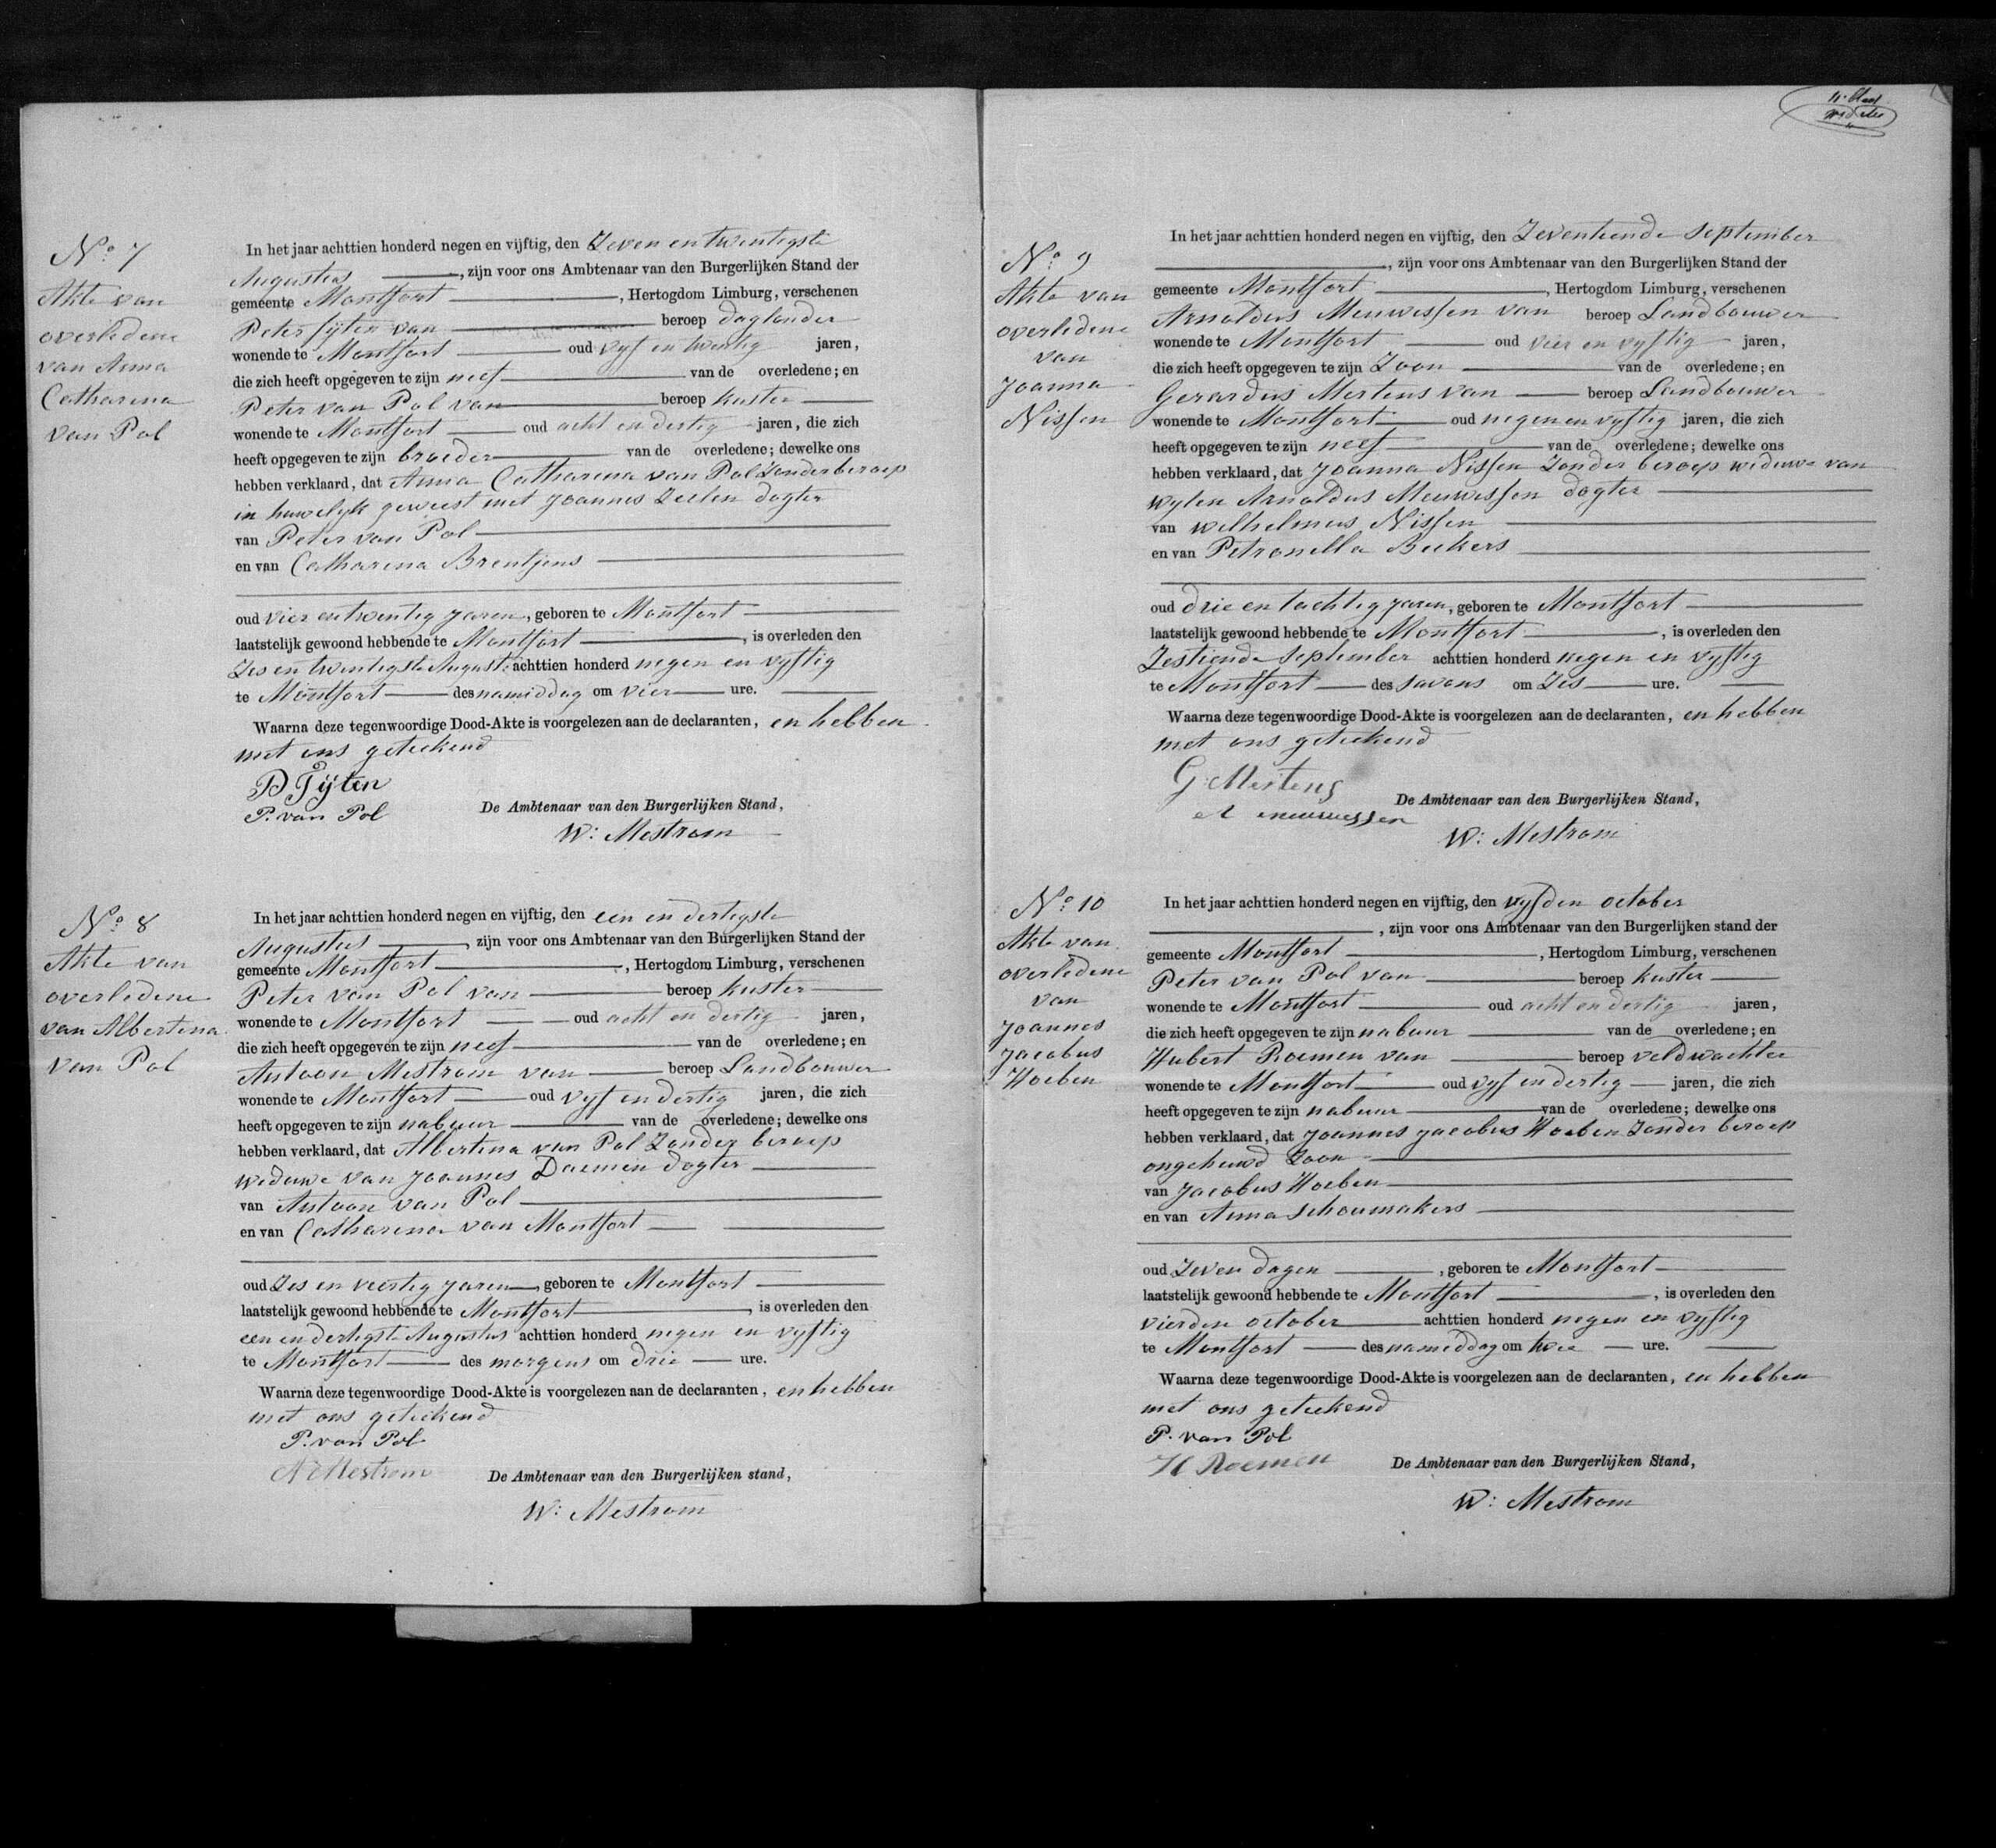 No 7
Akte van
overledene
van Anna
Catharina
van Pol
In het jaar achttien honderd negen en vijftig, den Zeven en twentigste
Augustus, zijn voor ons Ambtenaar van den Burgerlijken Stand der
gemeente Montfort, Hertogdom Limburg, verschenen
Peter Tijten van beroep daglonder
wonende te Montfort oud vyf en twentig jaren,
die zich heeft opgegeven te zijn neef van de overledene; en
Peter van Pol van beroep kuster
wonende te Montfort oud acht en dertig jaren, die zich
heeft opgegeven te zijn broeder van de overledene; dewelke ons
hebben verklaard, dat Anna Catharina van Pol Zonder beroep
in huwelyk geweest met Joannes Zeelen dogter
van Peter van Pol
en van Catharina Brentjens
oud vier en twentig jaren, geboren te Montfort
laatstelijk gewoond hebbende te Montfort, is overleden den
Zes en twentigste August: achttien honderd negen en vyftig
te Montfort des namiddag om vier ure.
Waarna deze tegenwoordige Dood-Akte is voorgelezen aan de declaranten, en hebben
met ons geteekend
P Tijten
P. van Pol
De Ambtenaar van den Burgerlijken Stand,
W: Mestrom
No 8
Akte van
overledene
van Albertina
van Pol
In het jaar achttien honderd negen en vijftig, den een en dertigste
Augustus, zijn voor ons Ambtenaar van den Burgerlijken Stand der
gemeente Montfort, Hertogdom Limburg, verschenen
Peter van Pol van beroep kuster
wonende te Montfort oud acht en dertig jaren,
die zich heeft opgegeven te zijn neef van de overledene; en
Antoon Mestrom van beroep Landbouwer
wonende te Montfort oud vyf en dertig jaren, die zich
heeft opgegeven te zijn nabuur van de overledene; dewelke ons
hebben verklaard, dat Albertina van Pol Zonder beroep
weduwe van Joannes Daemen dogter
van Antoon van Pol
en van Catharina van Montfort
oud Zes en veertig jaren, geboren te Montfort
laatstelijk gewoond hebbende te Montfort, is overleden den
een en dertigste Augustus achttien honderd negen en vyftig
te Montfort des morgens om drie ure.
Waarna deze tegenwoordige Dood-Akte is voorgelezen aan de declaranten, en hebben
met ons geteekend
P. van Pol
A Mestrom
De Ambtenaar van den Burgerlijken stand,
W: Mestrom
No 9
Akte van
overledene
van
Joanna
Nissen
In het jaar achttien honderd negen en vijftig, den Zeventiende September
, zijn voor ons Ambtenaar van den Burgerlijken Stand der
gemeente Montfort, Hertogdom Limburg, verschenen
Arnoldus Meuwissen van beroep Landbouwer
wonende te Montfort oud vier en vyftig jaren,
die zich heeft opgegeven te zijn Zoon van de overledene; en
Gerardus Mertens van beroep Landbouwer
wonende te Montfort oud negen en vyftig jaren, die zich
heeft opgegeven te zijn neef van de overledene; dewelke ons
hebben verklaard, dat Joanna Nissen Zonder beroep weduwe van
wylen Arnoldus Meuwissen dogter
van Wilhelmus Nissen
en van Petronella Beekers
oud drie en tachtig jaren, geboren te Montfort
laatstelijk gewoond hebbende te Montfort, is overleden den
Zestiende September achttien honderd negen en vyftig
te Montfort des savons om Zes ure.
Waarna deze tegenwoordige Dood-Akte is voorgelezen aan de declaranten, en hebben
met ons geteekend
G. Mertens
A Meuwessen
De Ambtenaar van den Burgerlijken Stand,
W: Mestrom
No 10
Akte van
overledene
van
Joannes
Jacobus
Hoeben
In het jaar achttien honderd negen en vijftig, den vyfden october
, zijn voor ons Ambtenaar van den Burgerlijken stand der
gemeente Montfort, Hertogdom Limburg, verschenen
Peter van Pol van beroep kuster
wonende te Montfort oud acht en dertig jaren,
die zich heeft opgegeven te zijn nabuur van de overledene; en
Hubert Roemen van beroep veldwachter
wonende te Montfort oud vyf en dertig jaren, die zich
heeft opgegeven te zijn nabuur van de overledene; dewelke ons
hebben verklaard, dat Joannes Jacobus Hoeben Zonder beroep
ongehuwd Zoon
van Jacobus Hoeben
en van Anna Schoumakers
oud Zeven dagen, geboren te Montfort
laatstelijk gewoond hebbende te Montfort, is overleden den
vierden october achttien honderd negen en vyftig
te Montfort des namiddag om twee ure.
Waarna deze tegenwoordige Dood-Akte is voorgelezen aan de declaranten, en hebben
met ons geteekend
P. van Pol
H Roemen
De Ambtenaar van den Burgerlijken Stand,
W: Mestrom